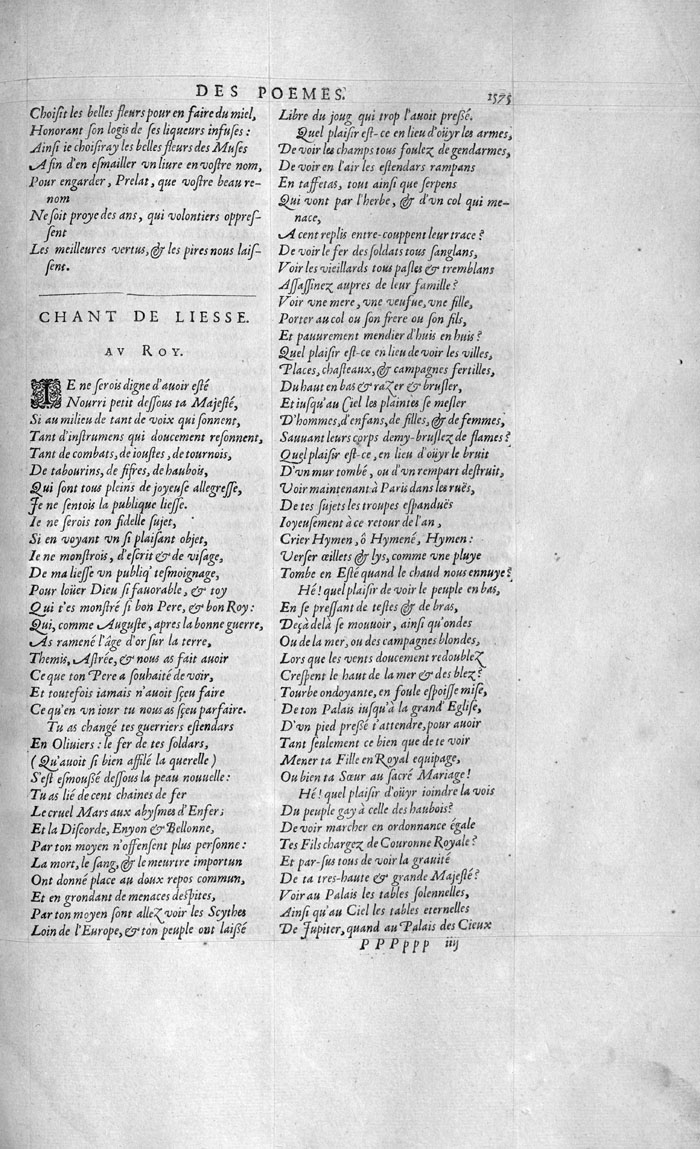 DES POEMES. 1575
Choisit les belles fleurs pour en faire du miel,
Honorant son logis de ses liqueurs infuses :
Ainsi ie choisiray les belles fleurs des Muses
Afin d'en esmailler vn liure en vostre nom,
Pour engarder, Prelat, que vostre beau re-
nom
Ne soit proye des ans, qui volontiers oppres-
sent
Les meilleures vertus, & les pires nous lais-
sent.
CHANT DE LIESSE.
AV ROY.
IE ne serois digne d'auoir esté
Nourri petit dessous ta Majesté,
Si au milieu de tant de voix qui sonnent,
Tant d'instrumens qui doucement resonnent,
Tant de combats, de ioustes, de tournois,
De tabourins, de fifres, de haubois,
Qui sont tous pleins de joyeuse allegresse,
Je ne sentois la publique liesse.
Ie ne serois ton fidelle sujet,
Si en voyant vn si plaisant objet,
Ie ne monstrois, d'escrit & de visage,
De ma liesse vn publiq' tesmoignage,
Pour loüer Dieu si fauorable, & toy
Qui t'es monstré si bon Pere, & bon Roy :
Qui, comme Auguste, apres la bonne guerre,
As ramené l'âge d'or sur la terre,
Themis, Astrée, & nous as fait auoir
Ce que ton Pere a souhaité de voir,
Et toutefois iamais n'auoit sçeu faire
Ce qu'en vn iour tu nous as sçeu parfaire.
Tu as changé tes guerriers estendars
En Oliuiers : le fer de tes soldars,
(Qu'auoit si bien affilé la querelle)
S'est esmoußé dessous la peau nouuelle :
Tu as lié de cent chaines de fer
Le cruel Mars aux abysmes d'Enfer;
Et la Discorde, Enyon & Bellonne,
Par ton moyen n'offensent plus personne :
La mort, le sang, & le meurtre importun
Ont donné place au doux repos commun,
Et en grondant de menaces despites,
Par ton moyen sont allez voir les Scythes
Loin de l'Europe, & ton peuple ont laißé
Libre du joug qui trop l'auoit preßé.
Quel plaisir est-ce en lieu d'oüyr les armes,
De voir les champs tous foulez de gendarmes,
De voir en l'air les estendars rampans
En taffetas, tout ainsi que serpens
Qui vont par l'herbe, & d'vn col qui me-
nace,
A cent replis entre-couppent leur trace ?
De voir le fer des soldats tous sanglans,
Voir les vieillards tous pasles & tremblans
Assassinez aupres de leur famille ?
Voir vne mere, vne veufue, vne fille,
Porter au col ou son frere ou son fils,
Et pauurement mendier d'huis en huis ?
Quel plaisir est-ce en lieu de voir les villes,
Places, chasteaux, & campagnes fertilles,
Du haut en bas & razer & brusler,
Et iusqu'au Ciel les plaintes se mesler
D'hommes, d'enfans, de filles, & de femmes,
Sauuant leurs corps demy-bruslez de flames ?
Quel plaisir est-ce, en lieu d'oüyr le bruit
D'vn mur tombé, ou d'vn rempart destruit,
Voir maintenant à Paris dans les ruës,
De tes sujets les troupes espanduës
Ioyeusement à ce retour de l'an,
Crier Hymen, ô Hymené, Hymen :
Verser œillets & lys, comme vne pluye
Tombe en Esté quand le chaud nous ennuye ?
Hé ! quel plaisir de voir le peuple en bas,
En se pressant de testes & de bras,
Deçà delà se mouuoir, ainsi qu'ondes
Ou de la mer, ou des campagnes blondes,
Lors que les vents doucement redoublez
Crespent le haut de la mer & des blez ?
Tourbe ondoyante, en foule espoisse mise,
De ton Palais iusqu'à la grand' Eglise,
D'vn pied preßé t'attendre, pour auoir
Tant seulement ce bien que de te voir
Mener ta Fille en Royal equipage,
Ou bien ta Sœur au sacré Mariage !
Hé ! quel plaisir d'oüyr ioindre la vois
Du peuple gay à celle des haubois ?
De voir marcher en ordonnance égale
Tes Fils chargez de Couronne Royale ?
Et par-sus tous de voir la grauité
De ta tres-haute & grande Majesté ?
Voir au Palais les tables solennelles,
Ainsi qu'au Ciel les tables eternelles
De Jupiter, quand au Palais des Cieux
PPPppp iiij